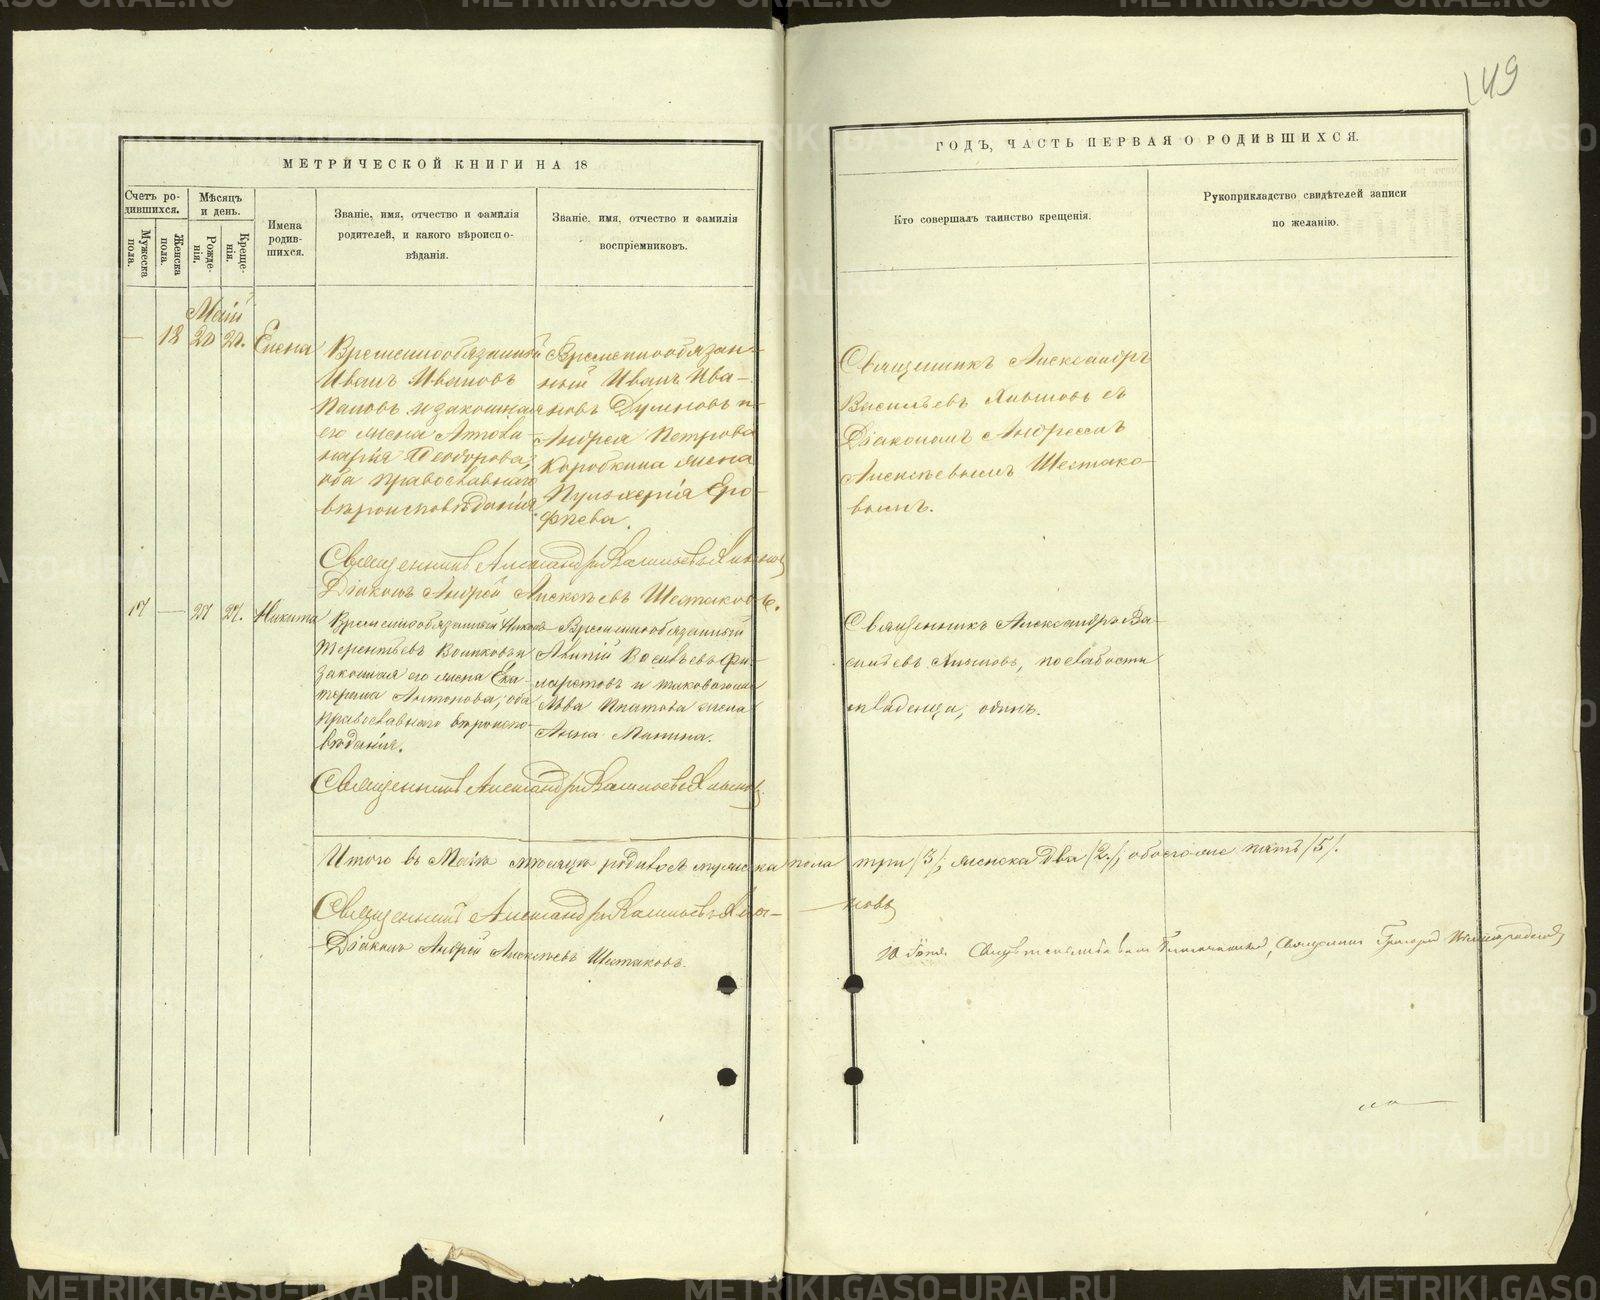 149
МЕТРИЧЕСКОЙ КНИГИ НА 18
ГОДЪ, ЧАСТЬ ПЕРВАЯ О РОДИВШИХСЯ.
Счетъ ро-
дившихся.
Мужеска пола.
Женска пола.
Мѣсяцъ
и день.
Рожде-
нія.
Креще-
нія.
Имена
родив-
шихся.
Званіе, имя, отчество и фамилія
родителей, и какого вѣроиспо-
вѣданія.
Званіе, имя, отчество и фамилія
воспріемниковъ.
Кто совершалъ таинство крещенія.
Рукоприкладство свидѣтелей записи
по желанію.
Май
— 18 20 21. Елена
Временнообязанный
Иванъ Ивановъ
Паповъ и законная
его жена Аполи-
нарія Ѳеодорова,
оба православнаго
вѣроисповѣданія.
Временнообязан-
ный Иванъ Ива-
новъ Думновъ и
Андрея Петрова
Коробкина жена
Пульхерія Еро-
фѣева.
Священникъ Александръ
Васильевъ съ
Діакономъ Андреемъ
Алексѣевымъ Шестако-
вымъ.
Священникъ Александръ Васильевъ
Діаконъ Андрей Алексѣевъ Шестаковъ.
17 — 27 27. Никита
Временнообязанный
Терентьевъ и
законная его жена Ека-
терина Антонова, оба
православнаго вѣроиспо-
вѣданія.
Временнообязанный
Фи-
ларетовъ и
Льва Платова жена
Анна Манина.
Священникъ Александръ Ва-
сильевъ по слабости
младенца, одинъ.
Священникъ Александръ Васильевъ
Итого въ Маѣ мѣсяцѣ родилося мужеска пола три /3/, женска два /2/, обоего же пять /5/.
Священникъ Александръ Васильевъ
новъ
Діаконъ Андрей Алексѣевъ Шестаковъ.
Священникъ Григорій
METRIKI.GASO-URAL.RU